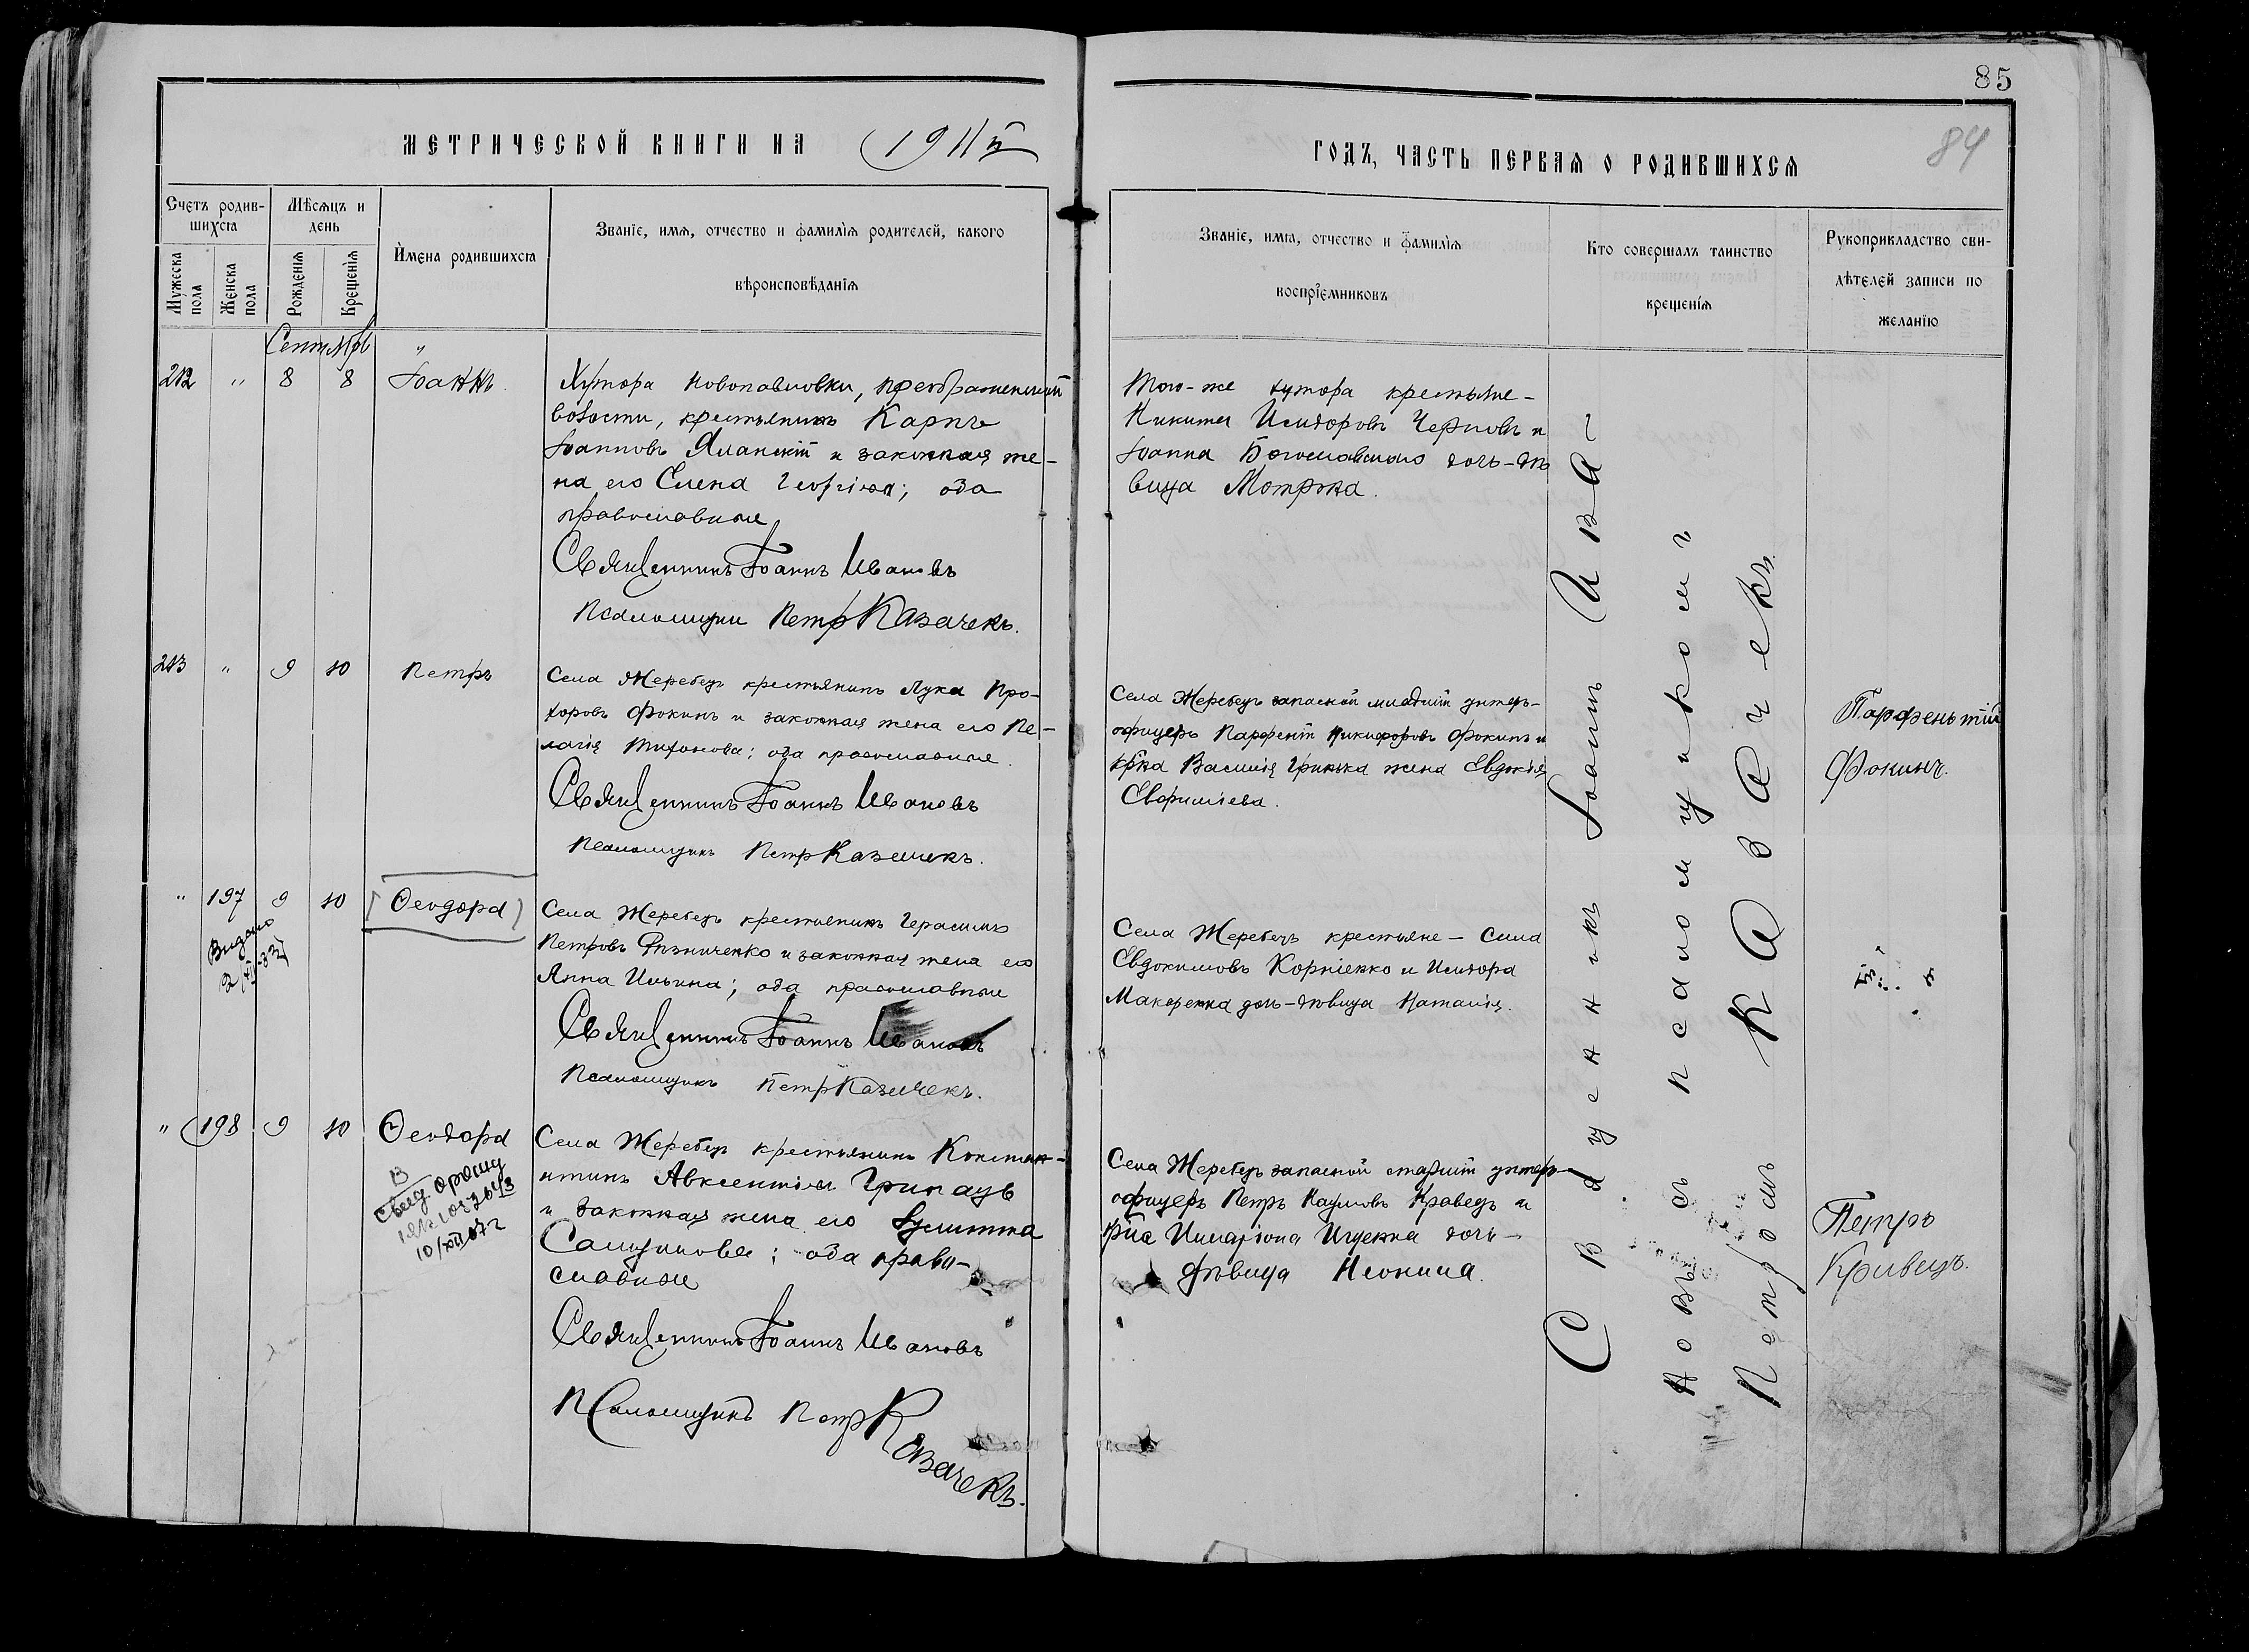 85
84
МЕТРИЧЕСКОЙ КНИГИ НА 1911й
ГОДЪ, ЧАСТЬ ПЕРВАЯ О РОДИВШИХСЯ
Счетъ родив-
шихся
Мужеска пола
Женска пола
Мѣсяцъ и
день
Рожденія
Крещенія
Имена родившихся
Званіе, имя, отчество и фамилія родителей, какого
вѣроисповѣданія
Званіе, имя, отчество и фамилія
воспріемниковъ
Кто совершалъ таинство
крещенія
Рукоприкладство сви-
дѣтелей записи по
желанію
212 " 8 8 Іоаннъ
Хутора Новопавловки, Преображенской
волости, крестьянинъ Карпъ
Іоанновъ Яланскій и законная же-
на его Елена Георгіева; оба
православные
Священникъ Іоаннъ Ивановъ
Псаломщикъ Петръ Казачекъ.
Того-же хутора крестьяне-
Никита Исидоровъ Черновъ и
Іоанна Богославскаго дочь-дѣ
вица Мотрона.
213 " 9 10 Петръ
Села Жеребецъ крестьянинъ Лука Про-
хоровъ Фокинъ и законная жена его Пе-
лагія Тихонова; оба православные.
Священникъ Іоаннъ Ивановъ
Псаломщикъ Петръ Казачекъ.
Села Жеребецъ запасной младшій унтеръ-
офицеръ Парфеній Никифоровъ Фокинъ и
кр̃на Василія Гринька жена Евдокія
Парфентій
Фокинъ.
" 197 9 10 Ѳеодора
Видано
Села Жеребецъ крестьянинъ Герасимъ
Петровъ Рѣзниченко и законная жена его
Анна Ильина; оба православные
Священникъ Іоаннъ Ивановъ
Псаломщикъ Петръ Казачекъ.
Села Жеребецъ крестьяне- Сила
Евдокимовъ Корніенко и Исидора
Макаренка дочь-дѣвица Наталія.
" 198 9 10 Ѳеодора
Села Жеребецъ крестьянинъ Констан-
тинъ Авксентіевъ Грипасъ
и законная жена его Іулитта
Самуилова; оба право-
славные
Священникъ Іоаннъ Ивановъ
Псаломщикъ Петръ Казачекъ.
Села Жеребецъ запасной старшій унтеръ-
офицеръ Петръ Наумовъ Кравецъ и
Иларіона Ищенка дочь-
дѣвица Неонила.
Петръ
Кривецъ.
Священникъ Іоаннъ Ива-
новъ съ псаломщикомъ
Петромъ Казачекъ.